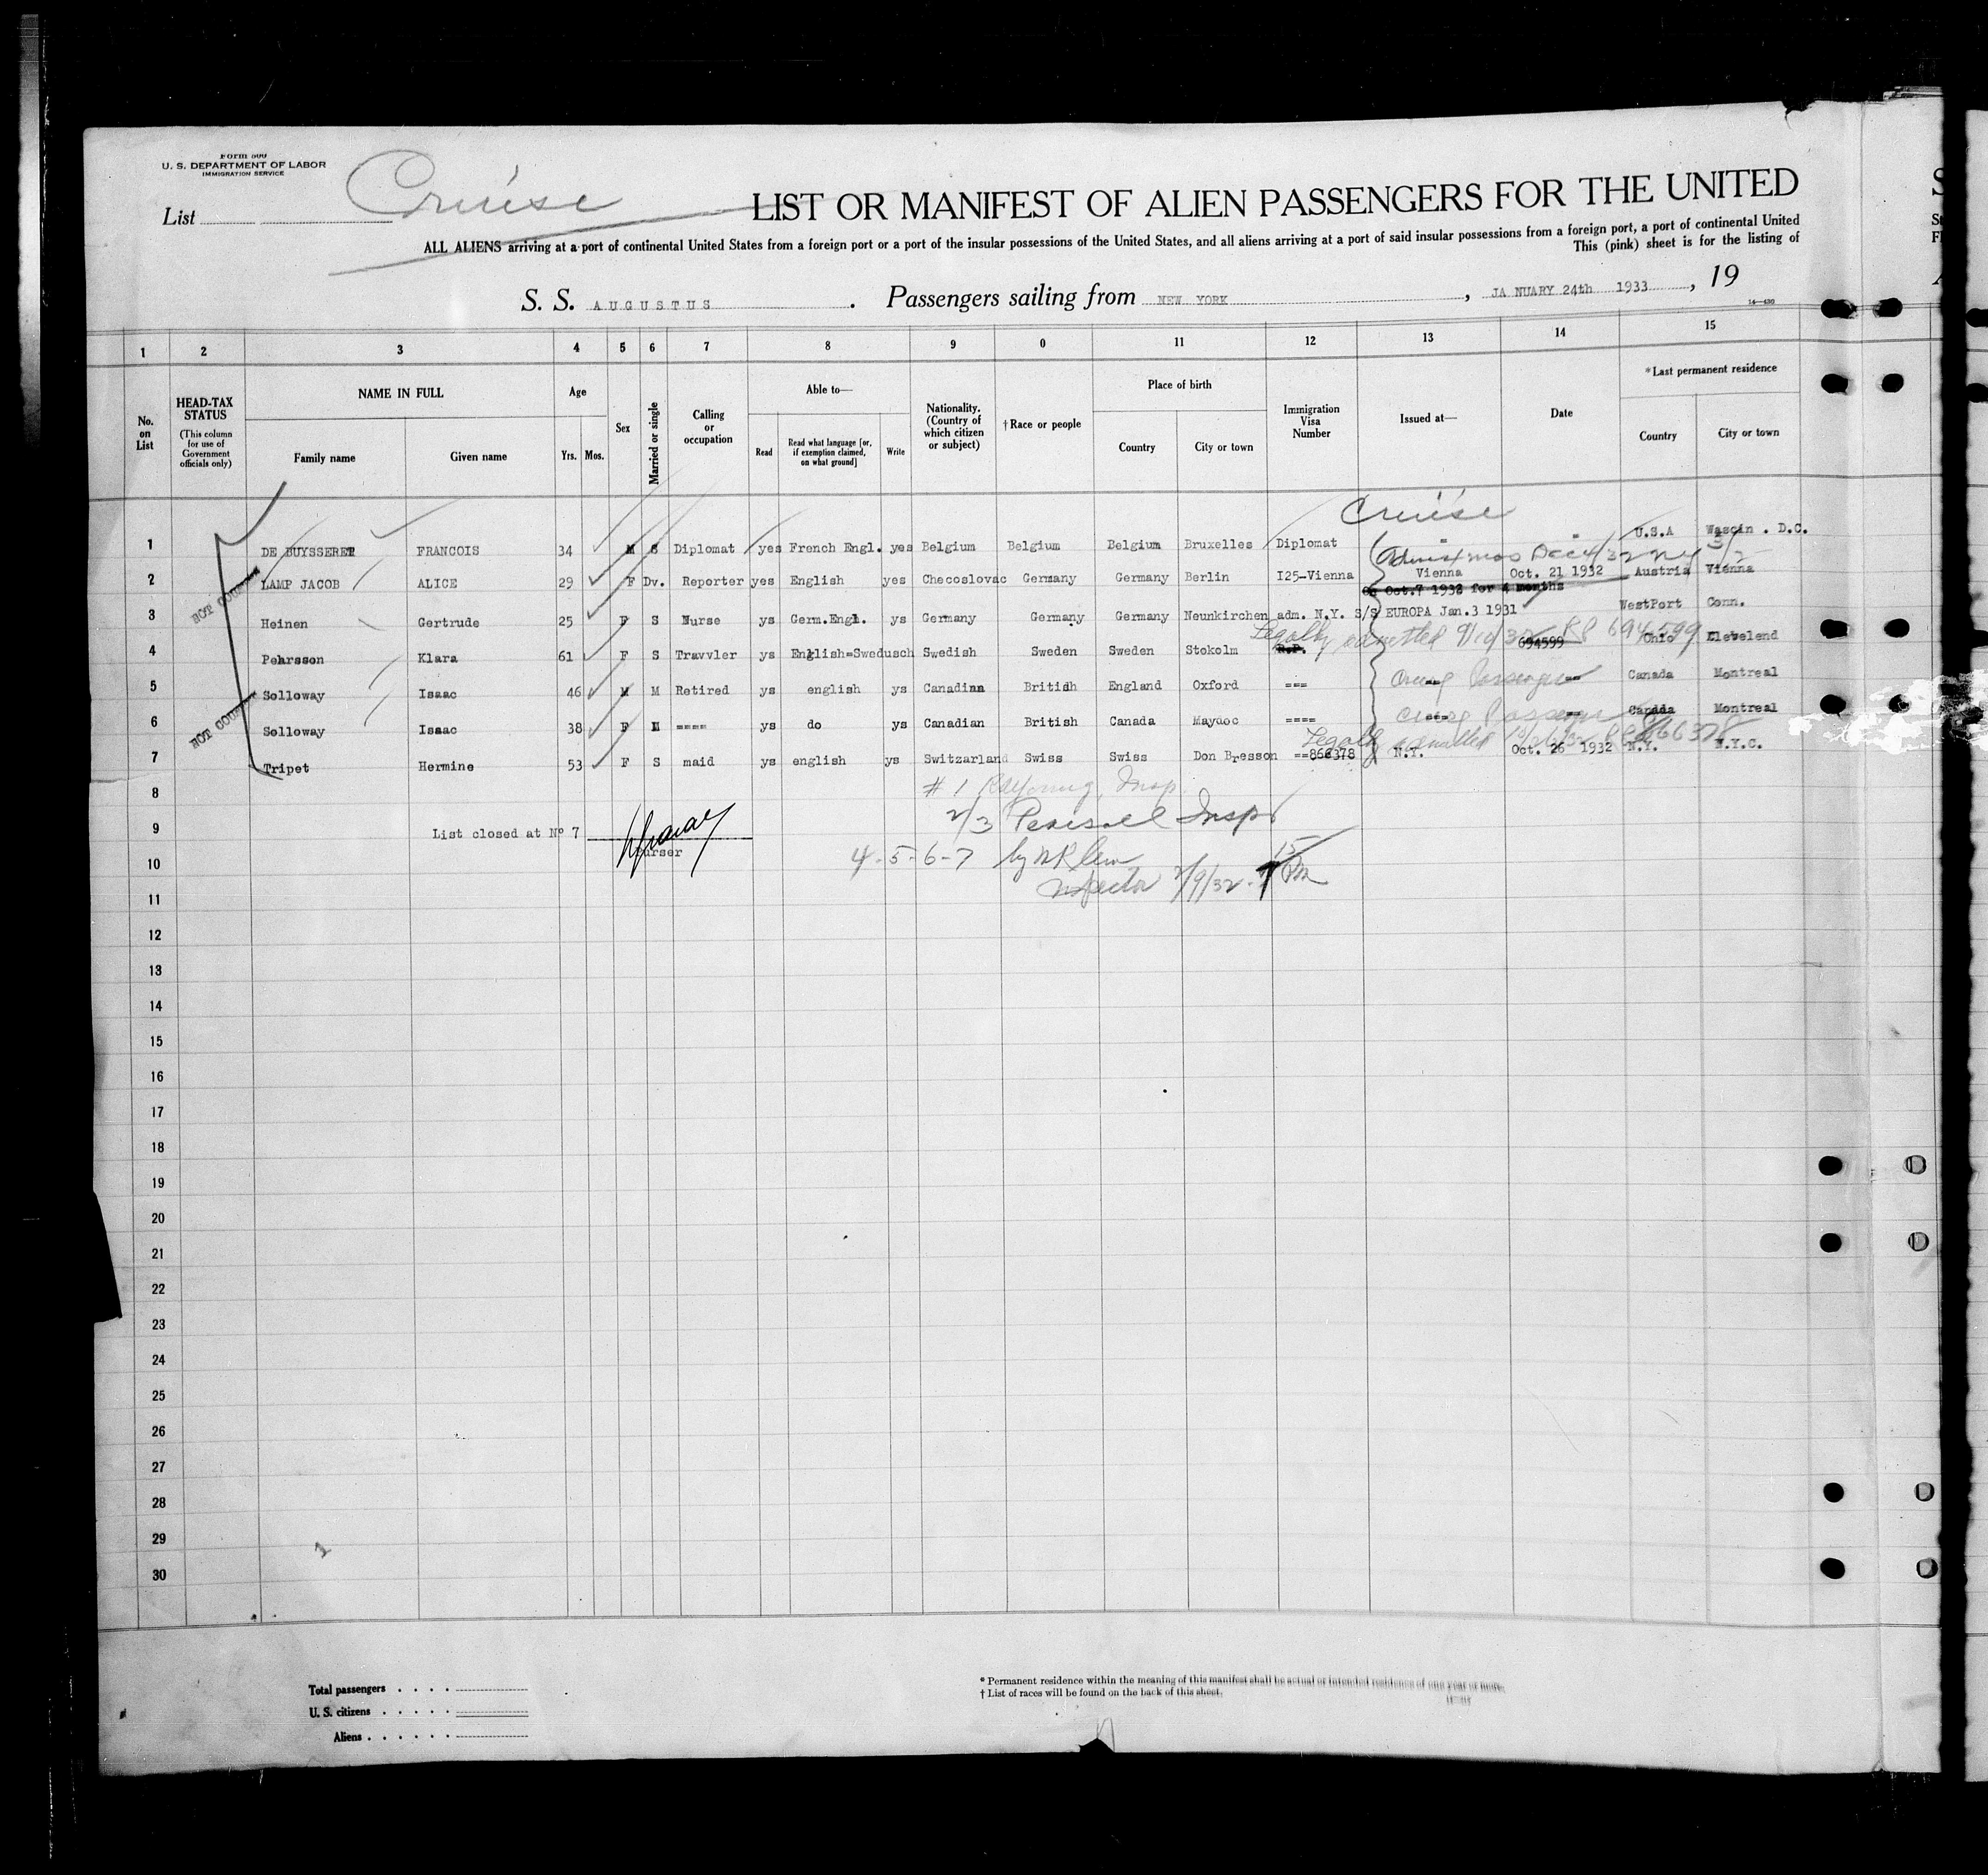 Form 500
U. S. DEPARTMENT OF LABOR
IMMIGRATION SERVICE
List
Cruise
LIST OR MANIFEST OF ALIEN PASSENGERS FOR THE UNITED
ALL ALIENS arriving at a port of continental United States from a foreign port or a port of the insular possessions of the United States, and all aliens arriving at a port of said insular possessions from a foreign port, a port of continental United
This (pink) sheet is for the listing of
S. S. AUGUSTUS . Passengers sailing from NEW YORK , JA NUARY 24th 1933 , 19
14—430
1 2 3 4 5 6 7 8 9 0 11 12 13 14 15
No. on List
HEAD-TAX STATUS (This column for use of Government officials only)
NAME IN FULL
Family name Given name
Age
Yrs. Mos.
Sex
Married or single
Calling or occupation
Able to—
Read
Read what language [or, if exemption claimed, on what ground]
Write
Nationality. (Country of which citizen or subject)
† Race or people
Place of birth
Country City or town
Immigration Visa Number
Issued at—
Date
* Last permanent residence
Country City or town
Cruise
1 DE BUYSSERET FRANCOIS 34 M S Diplomat yes French Engl. yes Belgium Belgium Belgium Bruxelles Diplomat " " U.S.A D.C.
NOT COUNTED
2 LAMP JACOB ALICE 29 F Dv. Reporter yes English yes Checoslovac Germany Germany Berlin I25-Vienna Vienna Oct. 21 1932 Austria Vienna
Oct.7 1932 for 4 months
3 Heinen Gertrude 25 F S Nurse ys Germ.Engl. ys Germany Germany Germany Neunkirchen adm. N.Y. S/S EUROPA Jan.3 1931 WestPort Conn.
Legally admitted 9/10/30 RP 694599
4 Pehrsson Klara 61 F S Travvler ys English-Swedusch Swedish Sweden Sweden Stokolm R.P. 694599 Ohio Cleveland
5 Solloway Isaac 46 M M Retired ys english ys Canadian British England Oxford === Cruise Passenger Canada Montreal
NOT COUNTED
6 Solloway Isaac 38 F M ==== ys do ys Canadian British Canada Maydoc ==== Cruise Passenger Canada Montreal
Legally admitted 866378
7 Tripet Hermine 53 F S maid ys english ys Switzarland Swiss Swiss Don Bresson ==866378 N.Y. Oct. 26 1932 N.Y. N.Y.C.
8 # 1 Insp.
9 List closed at Nº 7 2/3 Insp
Purser
10 4-5-6-7 by
11 Inspector 2/9/32
12
13
14
15
16
17
18
19
20
21
22
23
24
25
26
27
28
29
30
Total passengers . . . .
U. S. citizens . . . . .
Aliens . . . . . .
* Permanent residence within the meaning of this manifest shall be actual or intended residence of one year or more.
† List of races will be found on the back of this sheet.